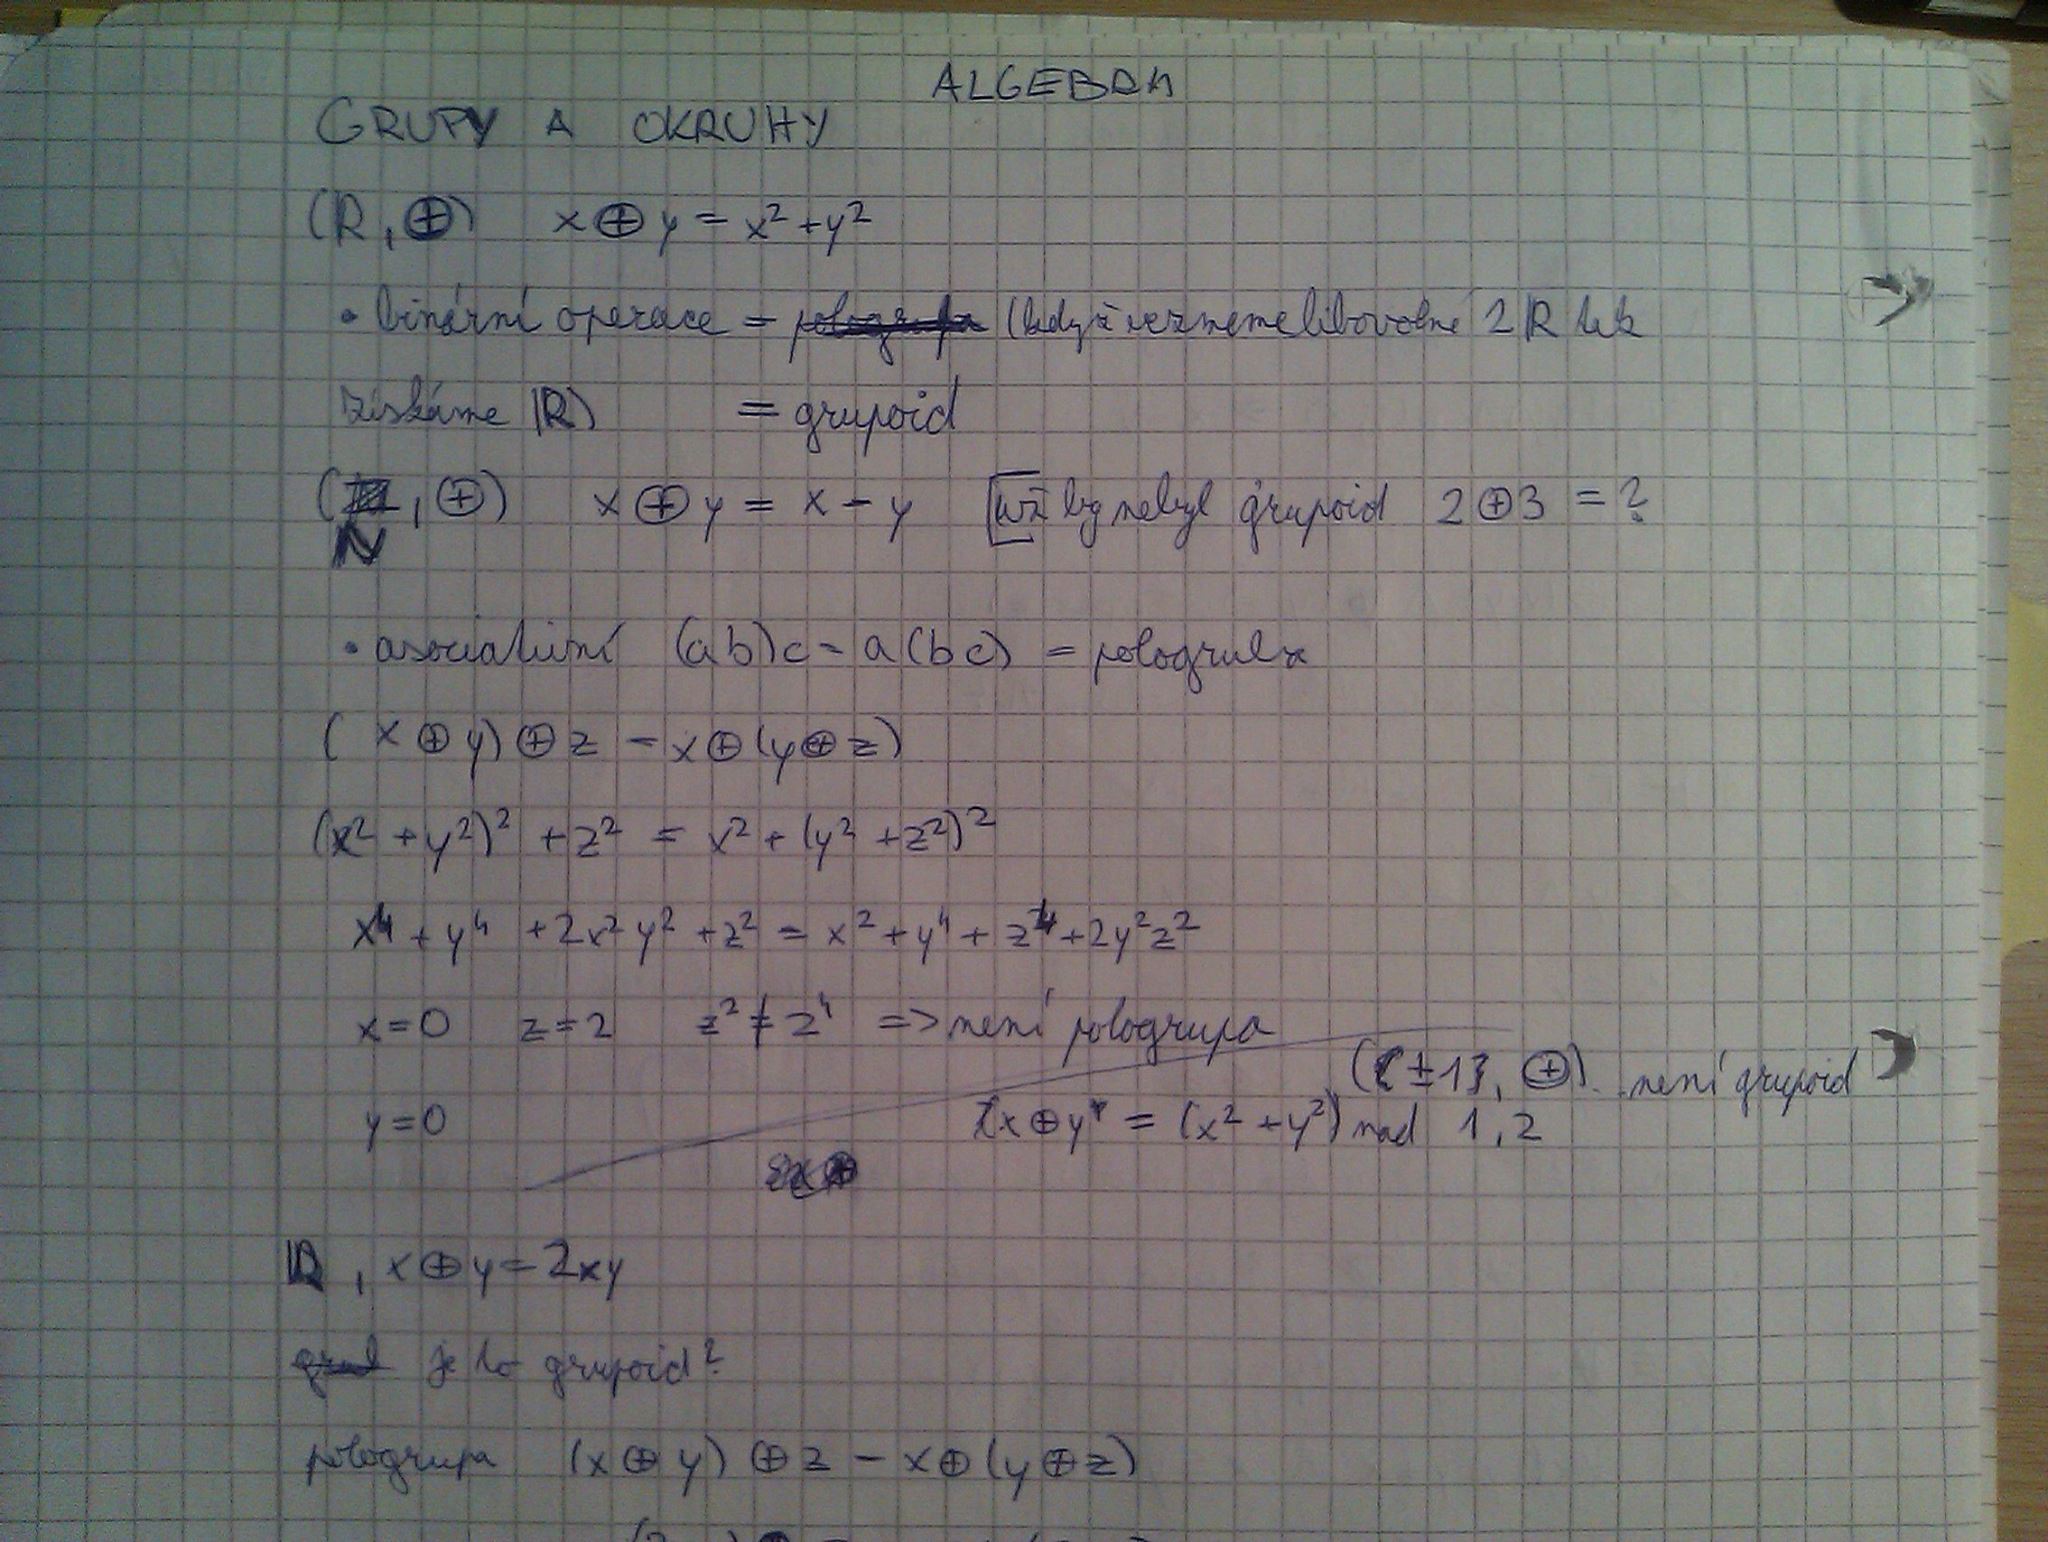 ALGEBRA
GRUPY A OKRUHY
(R, ⊕) x ⊕ y = x² + y²
• binární operace = pologrupa (když vezmeme libovolné 2 R tak
získáme R) = grupoid
(N, ⊕) x ⊕ y = x - y [už by nebyl grupoid 2 ⊕ 3 = ?
• asociativní (ab)c = a(bc) = pologrupa
(x ⊕ y) ⊕ z = x ⊕ (y ⊕ z)
(x² + y²)² + z² = x² + (y² + z²)²
x⁴ + y⁴ + 2x²y² + z² = x² + y⁴ + z⁴ + 2y²z²
x = 0 z = 2 z² ≠ z⁴ => není pologrupa
({±1}, ⊕) .. není grupoid
y = 0 x ⊕ y = (x² + y²) nad 1, 2
R, x ⊕ y = 2xy
je to grupoid?
pologrupa (x ⊕ y) ⊕ z = x ⊕ (y ⊕ z)